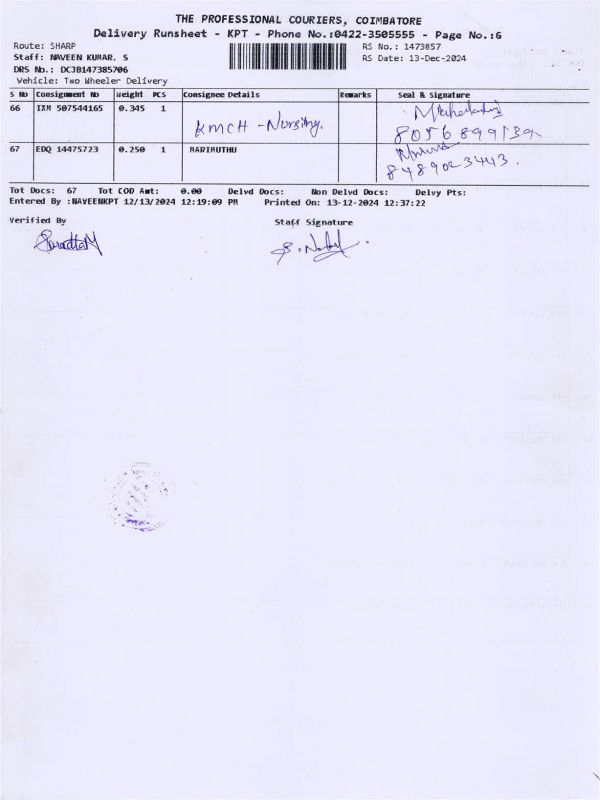 THE PROFESSIONAL COURIERS, COIMBATORE
Delivery Runsheet - KPT - Phone No.:0422-3505555 - Page No.:6
Route: SHARP RS No.: 1473857
Staff: NAVEEN KUMAR. S RS Date: 13-Dec-2024
DRS No.: DCJB147385706
Vehicle: Two Wheeler Delivery
S No Consignment No Weight PCS Consignee Details Remarks Seal & Signature
66 IXM 507544165 0.345 1 KMCH - Nursing.
8056899139
67 EDQ 14475723 0.250 1 MARIMUTHU
8489023443.
Tot Docs: 67 Tot COD Amt: 0.00 Delvd Docs: Non Delvd Docs: Delvy Pts:
Entered By :NAVEENKPT 12/13/2024 12:19:09 PM Printed On: 13-12-2024 12:37:22
Verified By Staff Signature